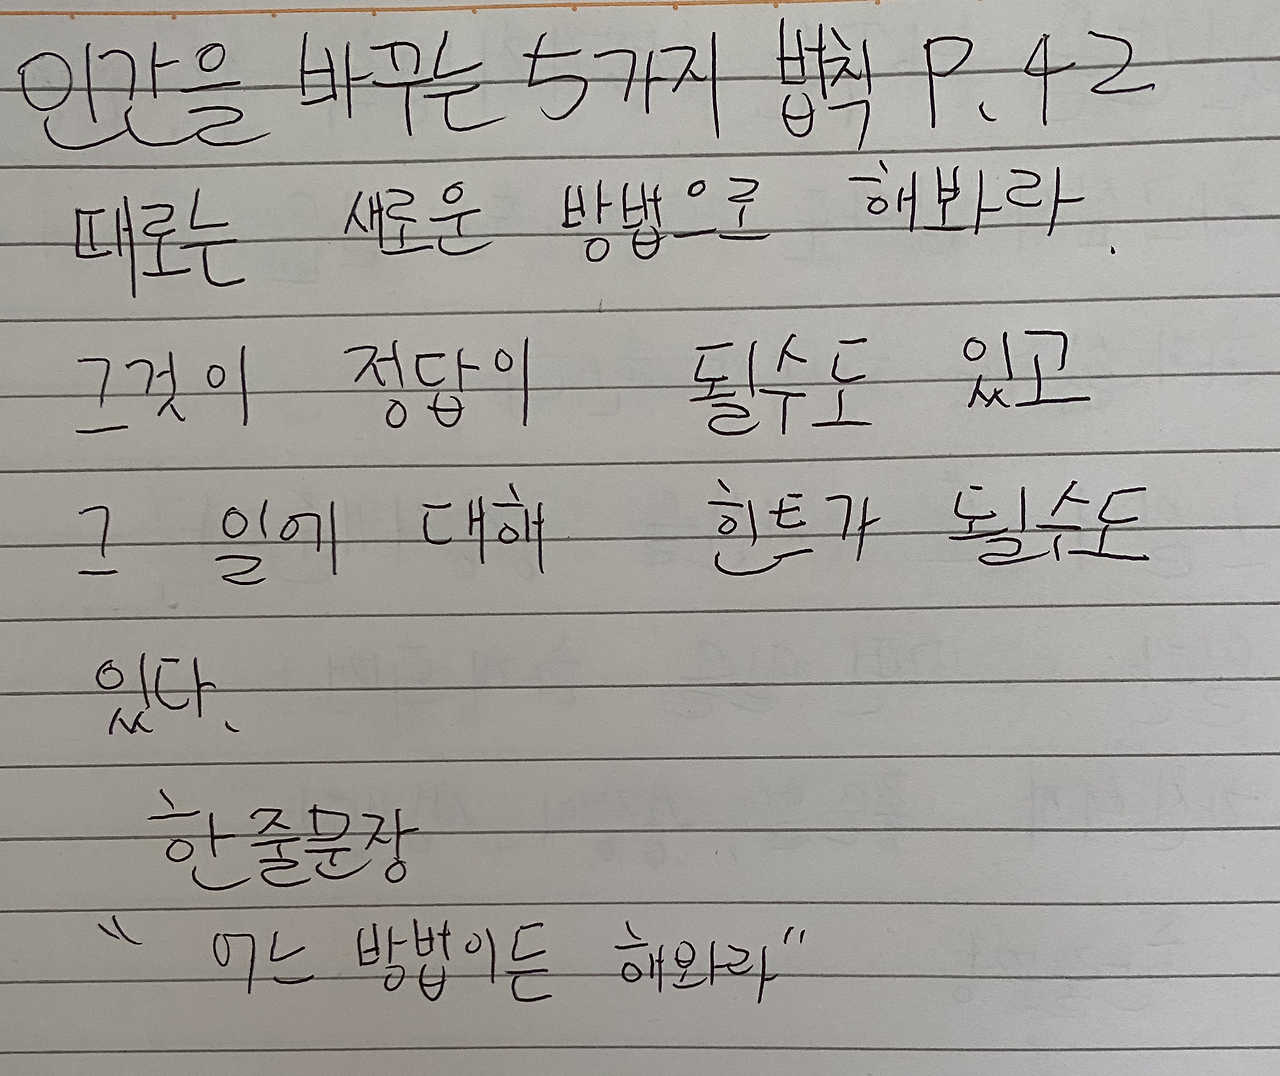 인간을 바꾸는 5가지 법칙 P.42
때로는 새로운 방법으로 해봐라.
그것이 정답이 될수도 있고
그 일에 대해 힌트가 될수도
있다.
한줄문장
"어느 방법이든 해와라"